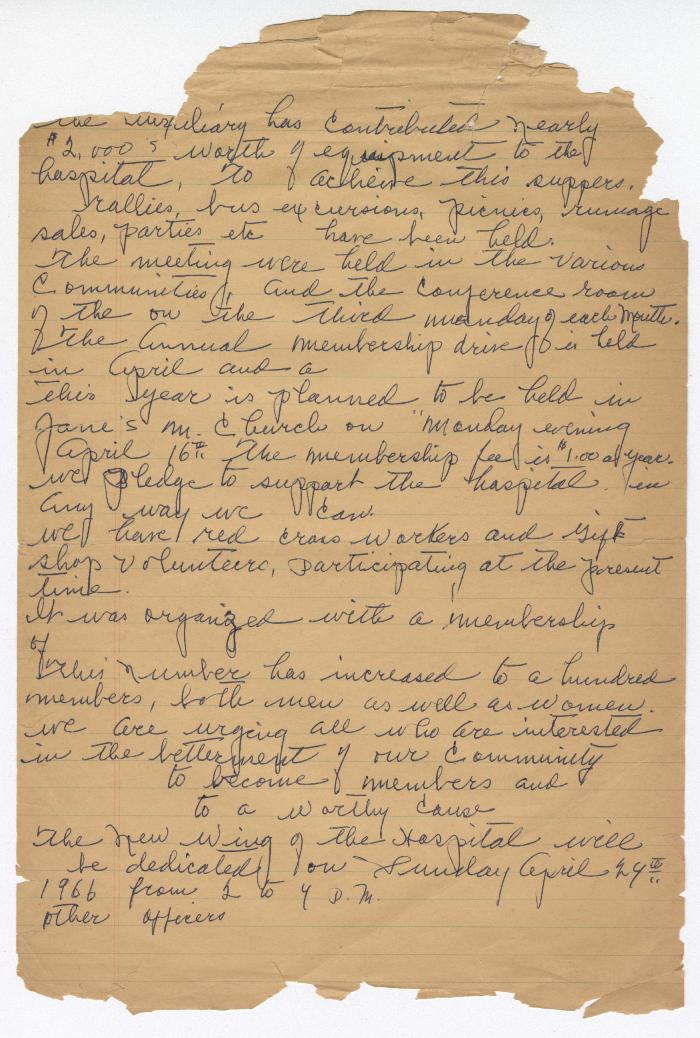 The Auxiliary has contributed nearly
$2,000's worth of equipment to the
hospital, to achieve this suppers.
rallies, bus excursions, picnics, rumage
sales, parties etc have been held.
The meeting were held in the various
Communities, and the conference room
of the on the third monday of each Month.
The Annual membership drive is held
in April and a
this year is planned to be held in
Jane's M. Church on "Monday evening
April 16th The membership fee is $1.00 a year.
we pledge to support the hospital in
any way we can.
we have red cross workers and Gift
shop volunteers, participating at the present
time.
It was organized with a membership
of
This number has increased to a hundred
members, both men as well as women.
we are urging all who are interested
in the betterment of our Community
to become members and
to a worthy cause
The New Wing of the Hospital will
be dedicated on Sunday April 24th
1966 from 2 to 4 P.M.
other officers